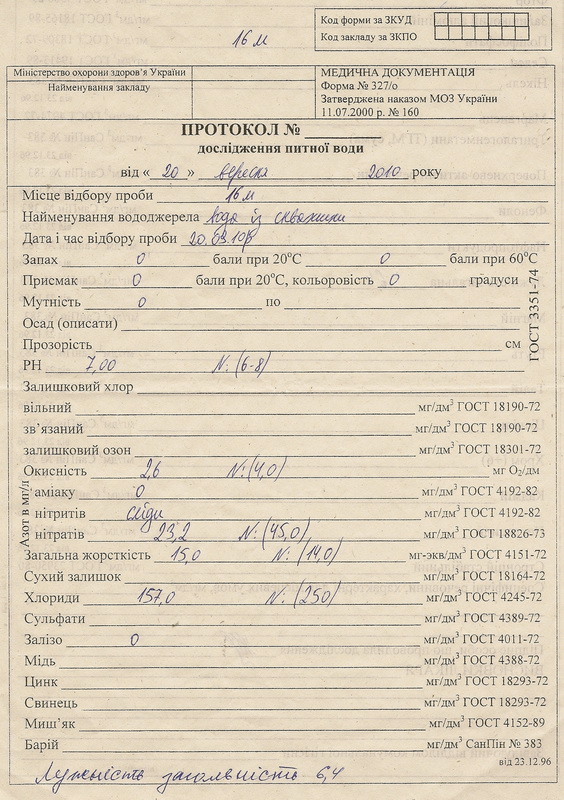 16 м
Код форми за ЗКУД
Код закладу за ЗКПО
Міністерство охорони здоров'я України
Найменування закладу
МЕДИЧНА ДОКУМЕНТАЦІЯ
Форма № 327/о
Затверджена наказом МОЗ України
11.07.2000 р. № 160
ПРОТОКОЛ №
дослідження питної води
від « 20 » вересня 2010 року
Місце відбору проби 16 м
Найменування вододжерела вода із скважини
Дата і час відбору проби 20.09.10р
Запах 0 бали при 20°С 0 бали при 60°С
Присмак 0 бали при 20°С, кольоровість 0 градуси
Мутність 0 по
ГОСТ 3351-74
Осад (описати)
Прозорість см
РН 7,00 N: (6-8)
Залишковий хлор
вільний мг/дм³ ГОСТ 18190-72
зв'язаний мг/дм³ ГОСТ 18190-72
залишковий озон мг/дм³ ГОСТ 18301-72
Окисність 2,6 N: (4,0) мг О₂/дм
Азот в мг/л
аміаку 0 мг/дм³ ГОСТ 4192-82
нітритів сліди мг/дм³ ГОСТ 4192-82
нітратів 23,2 N: (45,0) мг/дм³ ГОСТ 18826-73
Загальна жорсткість 15,0 N: (14,0) мг-экв/дм³ ГОСТ 4151-72
Сухий залишок мг/дм³ ГОСТ 18164-72
Хлориди 157,0 N: (250) мг/дм³ ГОСТ 4245-72
Сульфати мг/дм³ ГОСТ 4389-72
Залізо 0 мг/дм³ ГОСТ 4011-72
Мідь мг/дм³ ГОСТ 4388-72
Цинк мг/дм³ ГОСТ 18293-72
Свинець мг/дм³ ГОСТ 18293-72
Миш'як мг/дм³ ГОСТ 4152-89
Барій мг/дм³ СанПін № 383
від 23.12.96
Лужність загальність 6,4